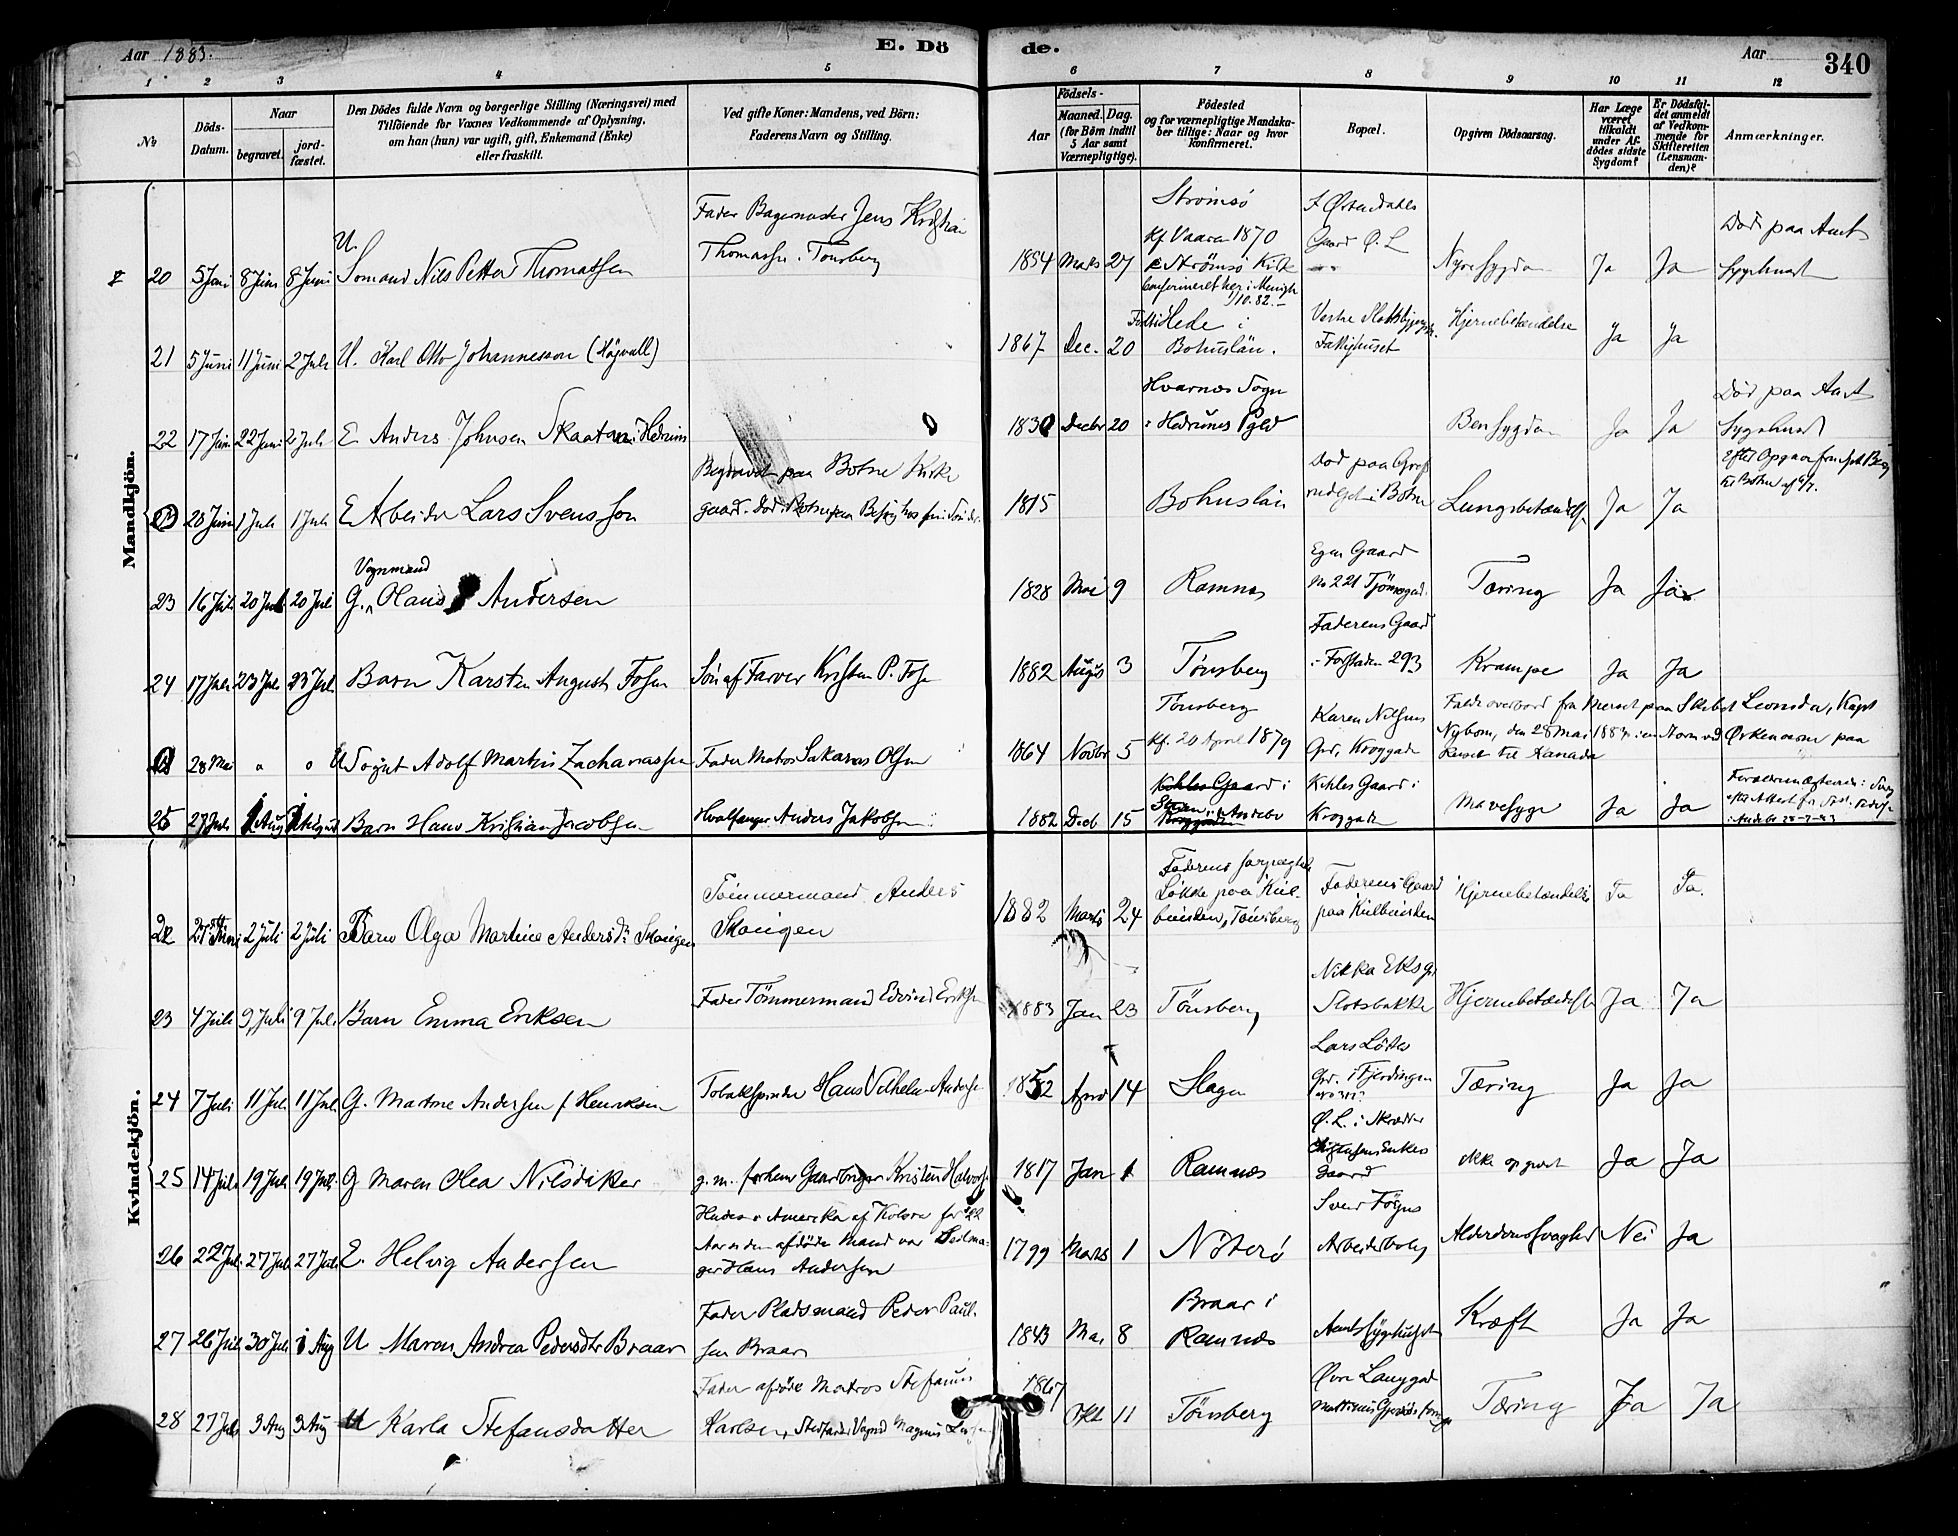 Aar 1883.
E. Dö
de.
Aar
340
1 2 3 4 5 6 7 8 9 10 11 12
No
Döds-Datum.
Naar
begravet.
jord-fæstet.
Den Dödes fulde Navn og borgerlige Stilling (Næringsvei) med
Tilföiende for Voxnes Vedkommende af Oplysning,
om han (hun) var ugift, gift, Enkemand (Enke)
eller fraskilt.
Ved gifte Koner: Mandens, ved Börn:
Faderens Navn og Stilling.
Födsels-
Aar
Maaned. Dag.
(for Börn indtil
5 Aar samt
Værnepligtige).
Födested
og for værnepligtige Mandska-
ber tillige: Naar og hvor
konfirmeret.
Bopæl.
Opgiven Dödsaarsag.
Har Læge
været
tilkaldt
under Af-
dödes sidste
Sygdom?
Er Dödsfal-
det anmeldt
af Vedkom-
mende for
Skifteretten
(Lensman-
den)?
Anmærkninger.
Mandkjön.
20 5 Juni 8 Juni 8 Juni U. Sömand Nils Petter Thomassen
Fader Bagermester Jens Kristian
Thomassen. Tönsberg
1854 Marts 27
Strömsö
Kf. Vaaren 1870
Strömsö Kirke
Confirmeret her i Menigh
1/10.82.
Gaard Ö. L.
Nyresygdom Ja Ja
Död paa Amts
Sygehuset
21 5 Juni 11 Juni 2 Juli U. Karl Otto Johannesson (Högvall)
1867 Dec. 20
Hede i
Bohuslän.
Fattighuset
Hjernebetændelse Ja Ja
22 17 Juni 22 Juni 2 Juli E. Anders Johnsen Skaatan i Hedrum
1830 Decbr 20
Hvarnes Sogn
i Hedrums Pgld
Bensygdom Ja Ja
Död paa Amts
Sygehuset
28 Juni 1 Juli 1 Juli E Arbeider Lars Svensson
Begravet paa Botne Kirke
gaard. Död i Botne paa Besög hos sin Sön
1815 Bohuslän
Död paa
i Botne
Lungebetændelse Ja Ja
Efter Opgave fra
til Botne
23 16 Juli 20 Juli 20 Juli G. Vognmand Olaus Andersen
1828 Mai 9 Ramnes
Egen Gaard
No 221 Tjömegad.
Tæring Ja Ja
24 17 Juli 23 Juli 23 Juli Barn Karsten August Fosen
Sön af Farver Kristen P. Fosen
1882 Augus 3 Tönsberg
Faderens Gaard
i Forstaden 293
Krampe Ja Ja
28 Mai " " U Sögut Adolf Martin Zachariassen
Fader Matros Sakarias Olsen
1864 Novbr 5
Tönsberg
Kf. 20 April 1879
Karen Nilsens
Grd. Kroggade
Faldt overbord fra Merset paa Skibet Leonidas, Kapt
Nybom, den 28 Mai 1883 i en Storm ved Örkenöerne paa
Reisen til Kanada
25 27 Juli 1 Aug 1 August Barn Hans Kristian Jacobsen
Hvalfanger Anders Jakobsen
1882 Decb 15
Kihles Gaard i
Andebo
Kihles Gaard i
Kroggaden
Mavesyge Ja Ja
i Andebo 28-7-83
Kvindekjön.
22 27 Juni 2 Juli 2 Juli Barn Olga Martine Andersdr Skougen
Tömmermand Anders
Skougen
1882 Marts 24
Faderens forpagtede
Lökke paa Kil-
bakken, Tönsberg
Faderens Gaard
paa Kilbakken
Hjernebetændelse Ja Ja.
23 4 Juli 9 Juli 9 Juli Barn Emma Eriksen
Fader Tömmermand Edvind Eriksen
1883 Jan 23 Tönsberg
Slotsbakken
Hjernebetændelse Ja Ja
24 7 Juli 11 Juli 11 Juli G. Martine Andersen f Henriksen
Tobakspinder Hans Vilhelm Andersen
1852 April 14 Slagen
Lars Löite
Grd. i Fjerdingen
Tæring Ja Ja
25 14 Juli 19 Juli 19 Juli G Maren Olea Nilsdtr
g. m. forhenv Gaardbruger Kristen Halvors
1817 Jan 1 Ramnes
Ö. L. i Skrædder
Enkes
Gaard
ikke opgivet Ja Ja
26 22 Juli 27 Juli 27 Juli E. Helvig Andersen
döde i Amerika af Kolera for 22
Aar siden afdöde Mand var Seilma-
ger Hans Andersen
1799 Marts 1 Nöterö
Svend Föyns
Arbeiderbolig
Alderdomssvaghed Nei Ja
27 26 Juli 30 Juli 1 Aug U Maren Andrea Pedersdtr Braar
Fader Pladsmand Peder Paul-
sen Braar
1843 Mai 8
Braar i
Ramnes
Amtssygehuset
Kræft Ja Ja
28 27 Juli 3 Aug 3 Aug U Karla Stefansdatter
Fader afdöde Matros Stefanus
Karlsen, Stedfader Vognd Magnus
1867 Okt 11 Tönsberg
Övre Langgad
Tæring Ja Ja